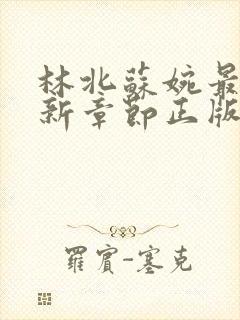 林北蘇婉最
新章節正版
羅賓-塞克